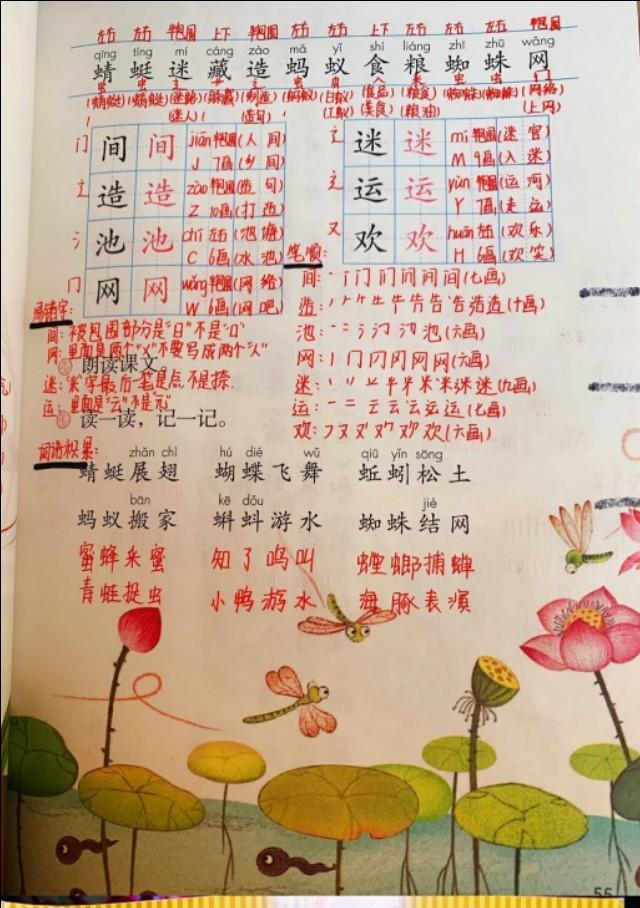 左右 左右 半包围 上下 半包围 左右 左右 上下 左右 左右 左右 半包围
qīng tíng mí cáng zào mǎ yǐ shí liáng zhī zhū wǎng
蜻 蜓 迷 藏 造 蚂 蚁 食 粮 蜘 蛛 网
虫 虫 辶 艹 辶 虫 虫 食 米 虫 虫 冂
(蜻蜓) (蜻蜓) (迷路) (制造) (蚂蚁) (白蚁) (食品) (粮食) (蜘蛛) (蜘蛛) (网络)
(迷人) (造句) (工蚁) (美食) (粮油) (上网)
门 间 间 jiān 半包围 (人间)
J 7画 (乡间)
辶 造 造 zào 半包围 (造句)
Z 10画 (打造)
氵 池 池 chí 左右 (池塘)
C 6画 (水池)
冂 网 网 wǎng 半包围 (网络)
W 6画 (网吧)
辶 迷 迷 mí 半包围 (迷宫)
M 9画 (入迷)
辶 运 运 yùn 半包围 (运河)
Y 7画 (走运)
又 欢 欢 huān 左右 (欢乐)
H 6画 (欢笑)
易错字:
间:被包围部分是"日"不是"口"
网:里面是两个"乂"不要写成两个"人"
朗读课文。
迷:"米"字最后一笔是点,不是捺.
运:里面是"云"不是"元"
读一读,记一记。
笔顺:
间: (七画)
造: (十画)
池: (六画)
网: (六画)
迷: (九画)
运: (七画)
欢: (六画)
词语积累:
zhǎn chì hú dié wǔ qiū yǐn sōng
蜻蜓展翅 蝴蝶飞舞 蚯蚓松土
bān kē dǒu jié
蚂蚁搬家 蝌蚪游水 蜘蛛结网
蜜蜂采蜜 知了鸣叫 螳螂捕蝉
青蛙捉虫 小鸭游水 海豚表演
55